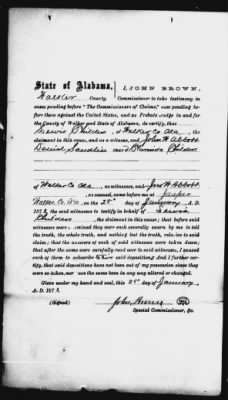 State of Alabama, I, JOHN BROWN,
Walker County. Commissioner to take testimony in
cases pending before "The Commissioners of Claims," now pending before
them against the United States, and as Probate Judge in and for
the County of Walker and State of Alabama, do certify, that
Lewis Childers, of Walker Co Ala, as
claimant in this cause, and as a witness, and John W Abbott
Daniel and Childers
of Walker Co Ala. as witnesses, and Jno W Abbott
as counsel, came before me at Jasper
Walker Co. Ala. on the day of January A. D.
187 , as witnesses to testify in behalf of Lewis
Childers, the claimant in this cause; that before said
witnesses were examined they were each severally sworn by me to tell
the truth, the whole truth, and nothing but the truth, relative to said
claim; that the answers of each of said witnesses were taken down;
that after the same were carefully read over to said witnesses, I caused
each of them to subscribe said deposition; And I further
certify, that said depositions have not been out of my possession since they
were so taken, nor has the same been in any way altered or changed.
Given under my hand and seal, this day of January,
A. D. 187
(Signed) John Brown
Special Commissioner, &c.